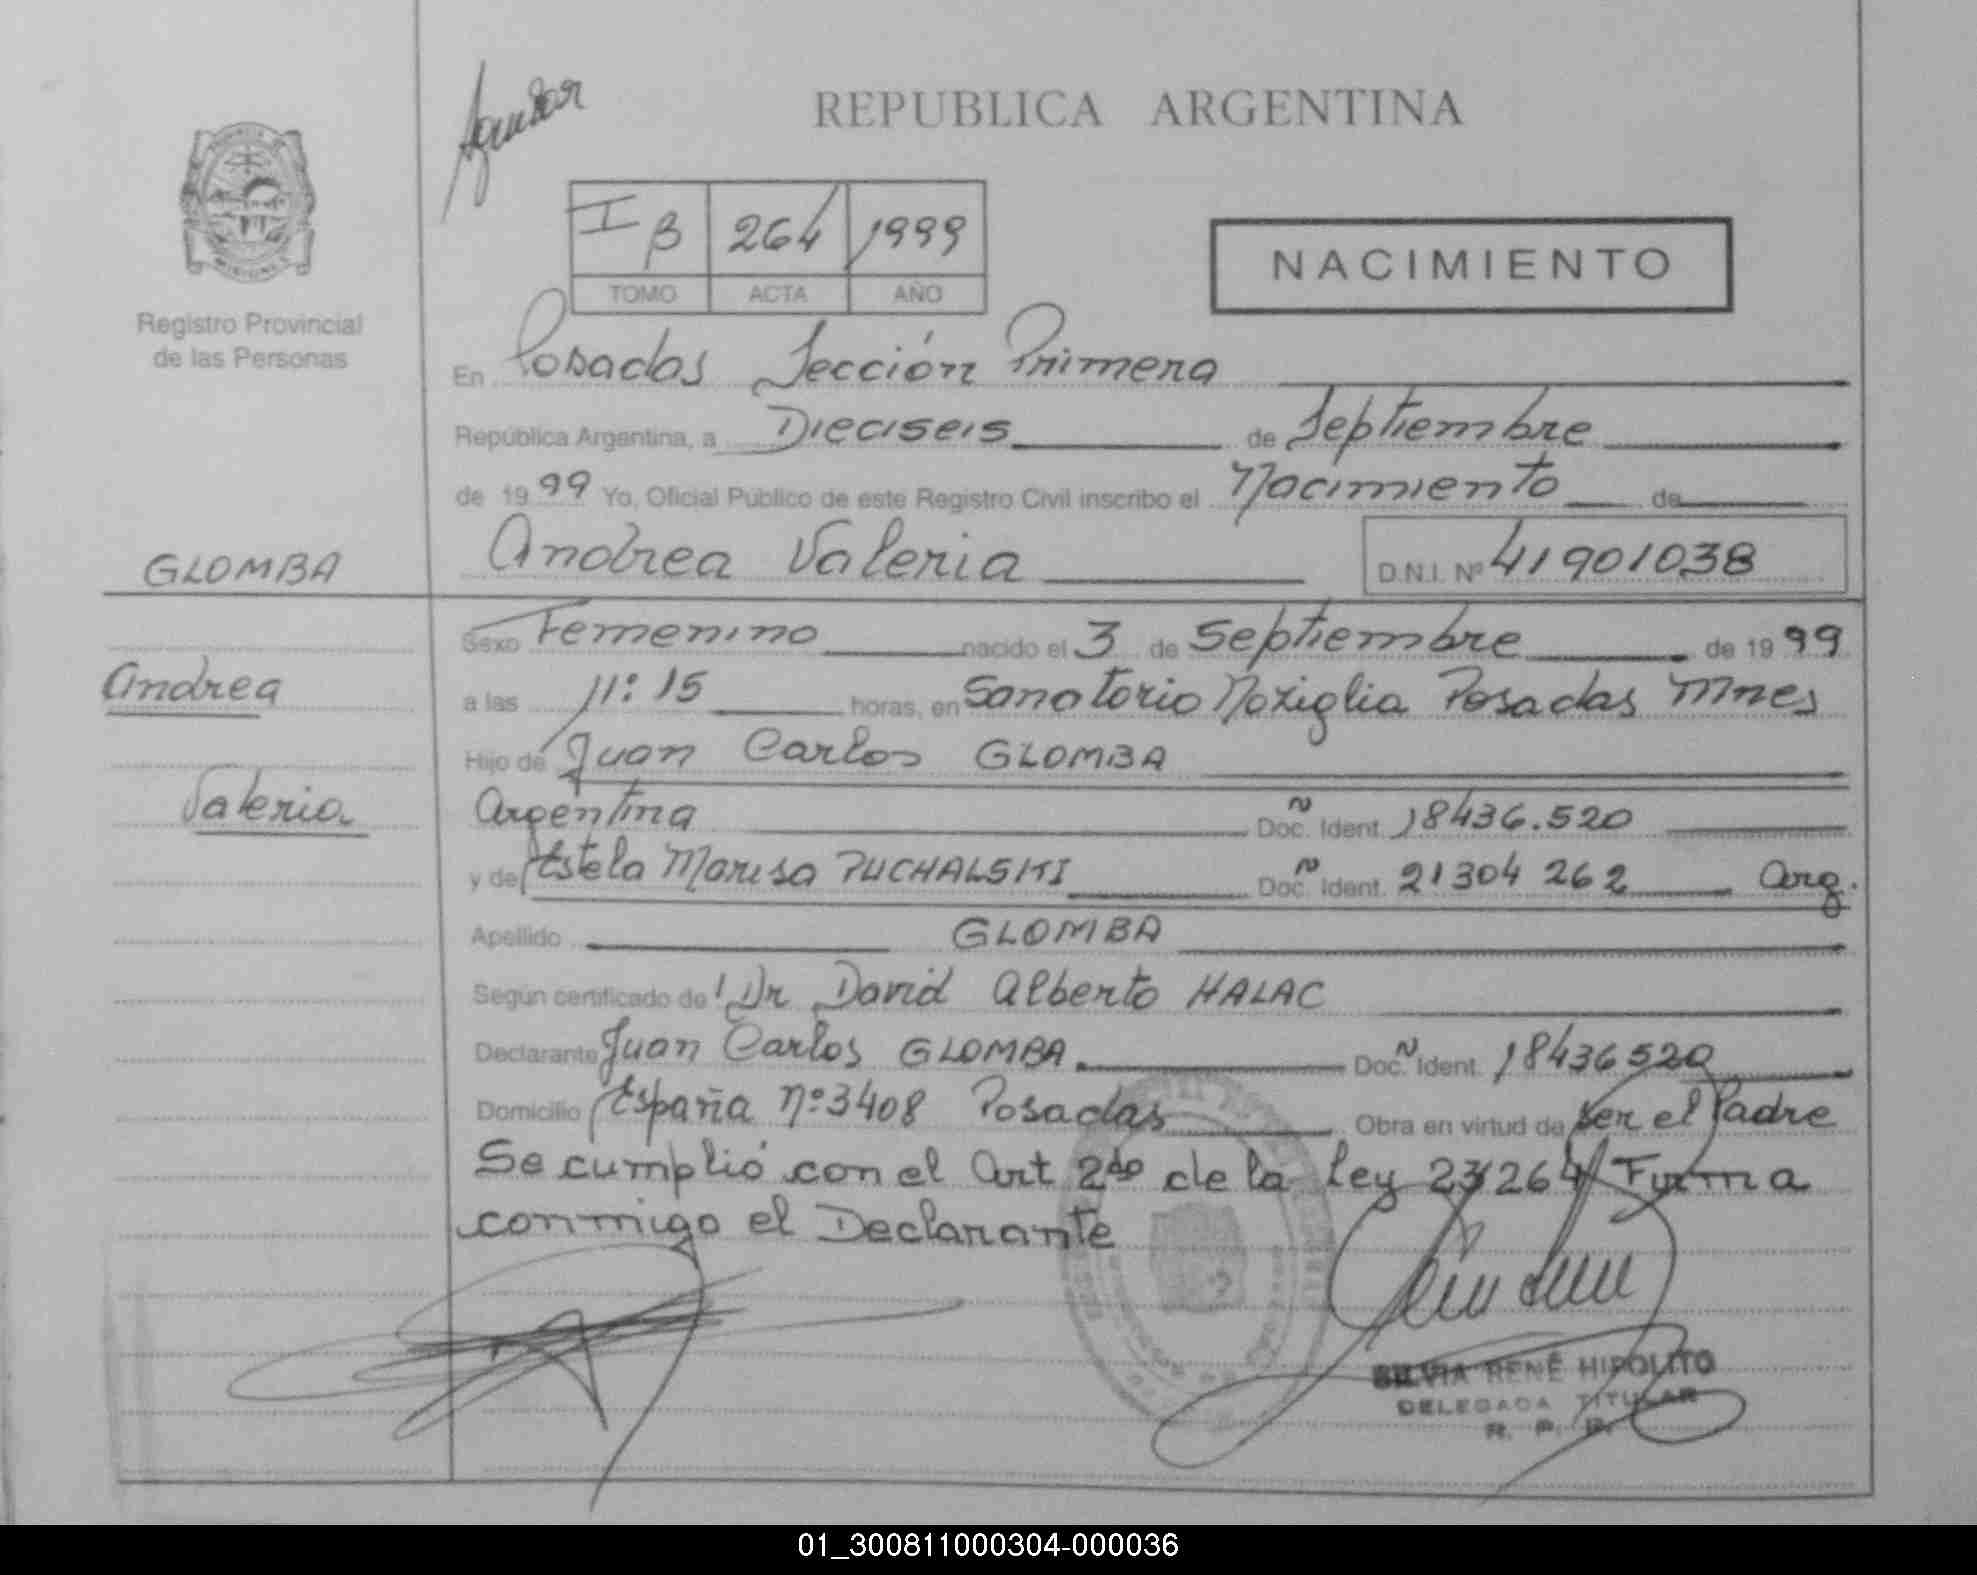 Aguilar
REPUBLICA ARGENTINA
I B 264 1999
TOMO ACTA AÑO
NACIMIENTO
MISIONES
Registro Provincial
de las Personas
En Posadas Sección Primera
República Argentina, a Dieciseis de Septiembre
de 1999 Yo, Oficial Público de este Registro Civil inscribo el Nacimiento de
GLOMBA
Andrea Valeria D.N.I. Nº 41901038
Sexo Femenino nacido el 3 de Septiembre de 1999
Andrea
a las 11:15 horas, en Sanatorio Nosiglia Posadas Mnes
Hijo de Juan Carlos GLOMBA
Valeria
Argentina Doc. Ident. 18436.520
y de Estela Marisa PUCHALSKI Doc. Ident. 21304 262 Arg.
Apellido GLOMBA
Según certificado de Dr David Alberto HALAC
Declarante Juan Carlos GLOMBA Doc. Ident. 18436520
Domicilio España nº 3408 Posadas Obra en virtud de ser el Padre
Se cumplió con el Art 2do de la Ley 23264 Firma
conmigo el Declarante
SILVIA RENÉ HIPOLITO
DELEGADA TITULAR
R. P. P.
01_300811000304-000036